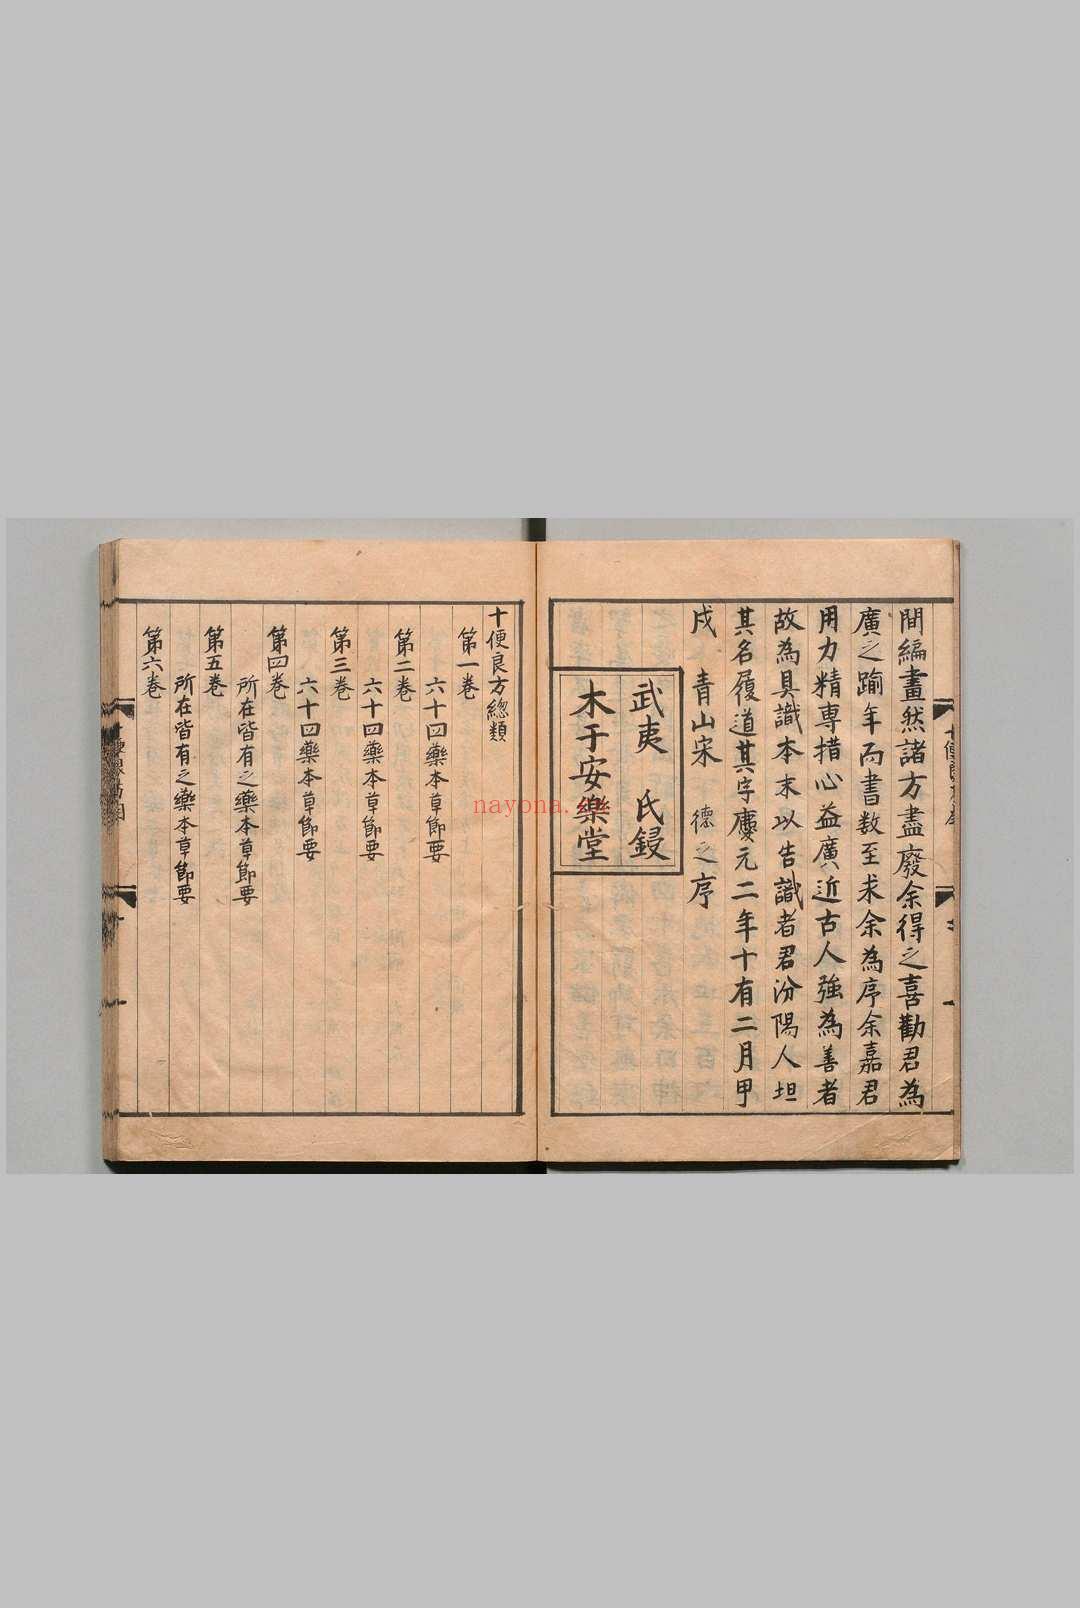 間編晝然諸方盡廢余得之喜勸君為
廣之踰年而書数至求余為序余嘉君
用力精專措心益廣近古人強為善者
故為具識本末以告識者君汾陽人坦
其名履道其字慶元二年十有二月甲
戍　青山宋　德之序
武夷　氏鋟
木于安樂堂
十便良方總類
第一卷
六十四藥本草節要
第二卷
六十四藥本草節要
第三卷
六十四藥本草節要
第四卷
所在皆有之藥本草節要
第五卷
所在皆有之藥本草節要
第六卷